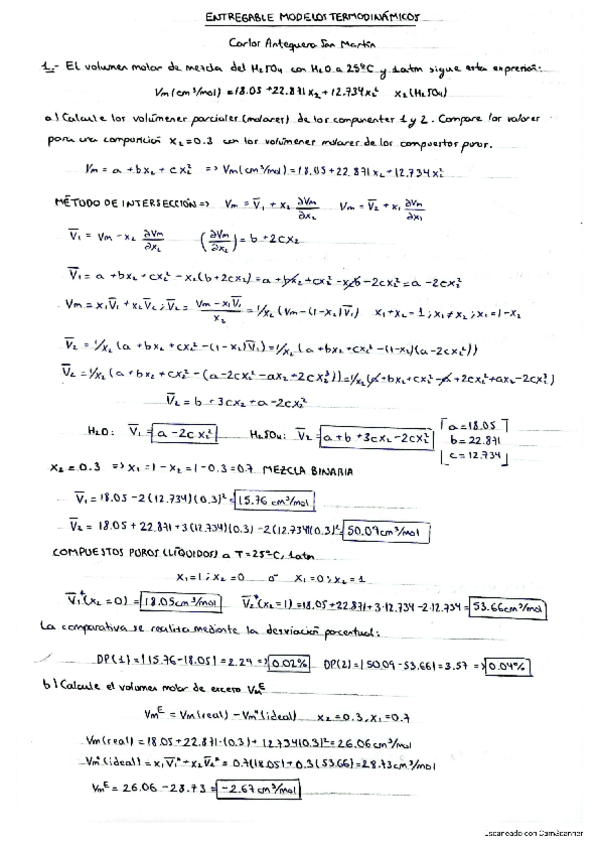 ENTREGABLE MODELOS TERMODINÁMICOS
Carlos Antequera San Martín
1.- El volumen molar de mezcla del H₂SO₄ con H₂O a 25ºC y 1atm sigue esta expresión:
Vm (cm³/mol) = 18.05 + 22.871x₂ + 12.734x₂² x₂(H₂SO₄)
a) Calcule los volúmenes parciales (molares) de los componentes 1 y 2. Compare los valores
para una composición x₂=0.3 con los volúmenes molares de los compuestos puros.
Vm = a + bx₂ + cx₂² => Vm(cm³/mol) = 18.05 + 22.871x₂ + 12.734x₂²
MÉTODO DE INTERSECCIÓN => Vm = V̄₁ + x₂ ∂Vm/∂x₂ Vm = V̄₂ + x₁ ∂Vm/∂x₁
V̄₁ = Vm - x₂ ∂Vm/∂x₂ (∂Vm/∂x₂) = b + 2cx₂
V̄₁ = a + bx₂ + cx₂² - x₂(b + 2cx₂) = a + bx₂ + cx₂² - x₂b - 2cx₂² = a - 2cx₂²
Vm = x₁V̄₁ + x₂V̄₂ ; V̄₂ = (Vm - x₁V̄₁)/x₂ = 1/x₂ (Vm - (1-x₂)V̄₁) x₁+x₂ = 1 ; x₁≠x₂ ; x₁ = 1-x₂
V̄₂ = 1/x₂ (a + bx₂ + cx₂² - (1-x₂)V̄₁) = 1/x₂ (a + bx₂ + cx₂² - (1-x₂)(a - 2cx₂²))
V̄₂ = 1/x₂ (a + bx₂ + cx₂² - (a - 2cx₂² - ax₂ + 2cx₂³)) = 1/x₂ (a + bx₂ + cx₂² - a + 2cx₂² + ax₂ - 2cx₂³)
V̄₂ = b + 3cx₂ + a - 2cx₂²
H₂O: V̄₁ = a - 2cx₂² H₂SO₄: V̄₂ = a + b + 3cx₂ - 2cx₂² [a = 18.05
b = 22.871
c = 12.734]
x₂ = 0.3 => x₁ = 1 - x₂ = 1 - 0.3 = 0.7 MEZCLA BINARIA
V̄₁ = 18.05 - 2(12.734)(0.3)² = 15.76 cm³/mol
V̄₂ = 18.05 + 22.871 + 3(12.734)(0.3) - 2(12.734)(0.3)² = 50.09 cm³/mol
COMPUESTOS PUROS (LÍQUIDOS) a T=25ºC, 1atm
x₁ = 1 ; x₂ = 0 o x₁ = 0 ; x₂ = 1
V̄₁*(x₂=0) = 18.05 cm³/mol V̄₂*(x₂=1) = 18.05 + 22.871 + 3·12.734 - 2·12.734 = 53.66 cm³/mol
La comparativa se realiza mediante la desviación porcentual:
DP(1) = |15.76 - 18.05| = 2.29 => 0.02% DP(2) = |50.09 - 53.66| = 3.57 => 0.04%
b) Calcule el volumen molar de exceso Vmᴱ
Vmᴱ = Vm(real) - Vm*(ideal) x₂ = 0.3, x₁ = 0.7
Vm(real) = 18.05 + 22.871·(0.3) + 12.734(0.3)² = 26.06 cm³/mol
Vm*(ideal) = x₁V̄₁* + x₂V̄₂* = 0.7(18.05) + 0.3(53.66) = 28.73 cm³/mol
Vmᴱ = 26.06 - 28.73 = -2.67 cm³/mol
Escaneado con CamScanner